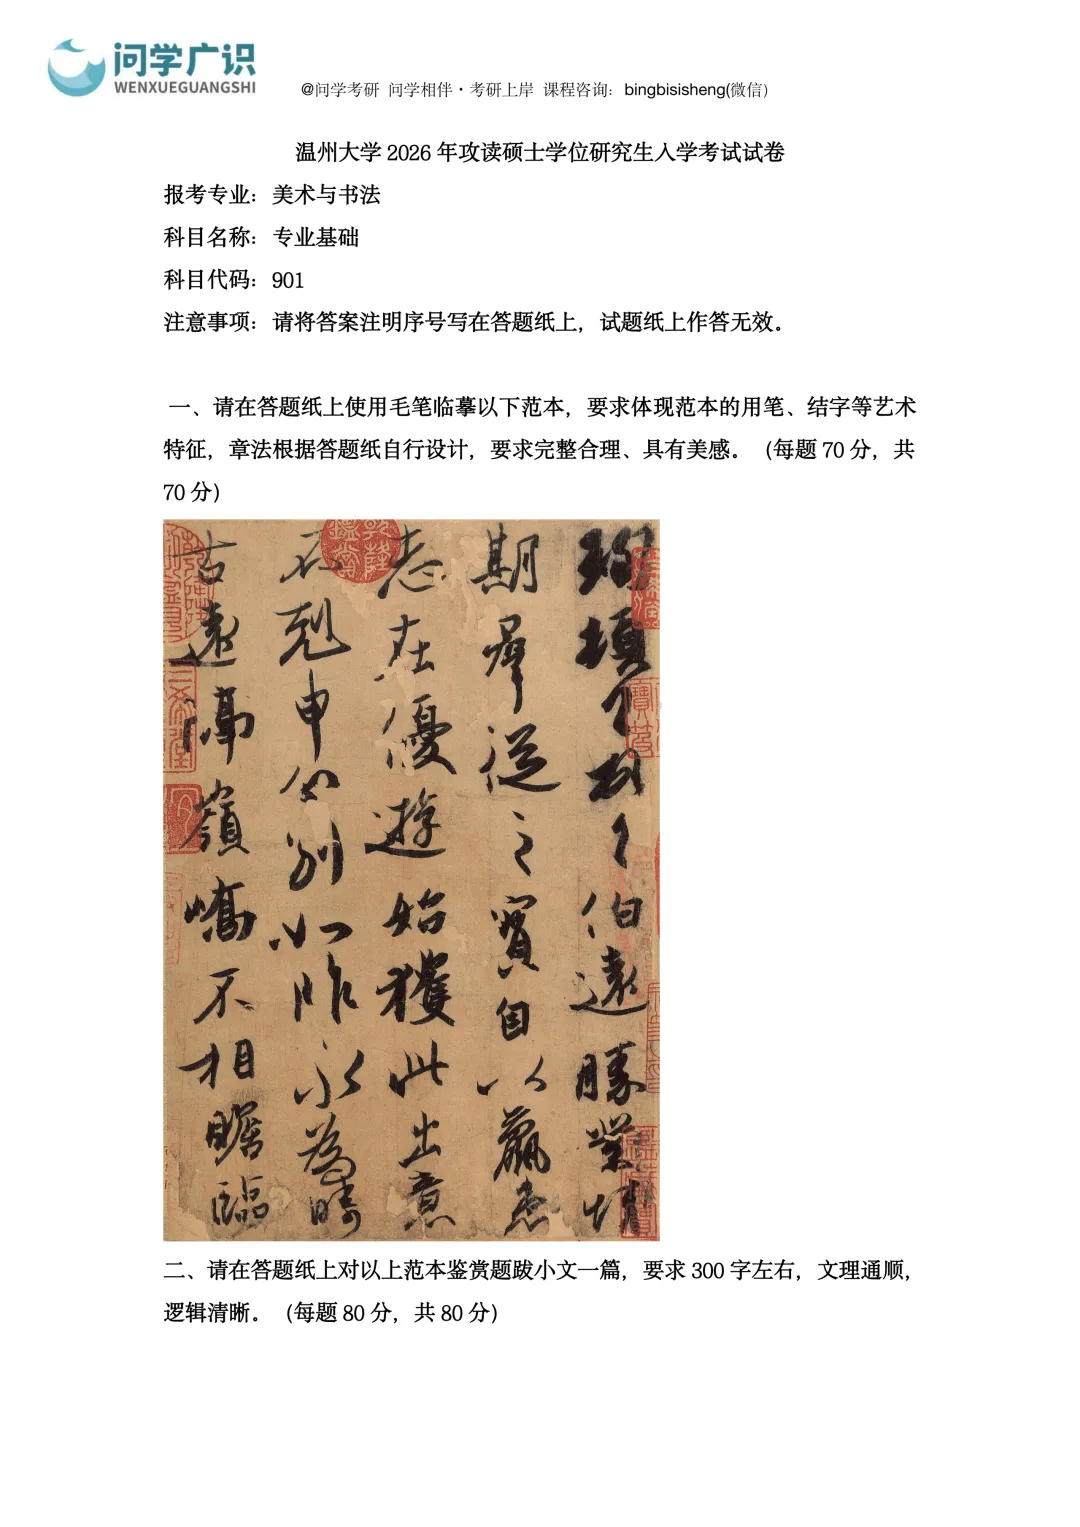 问学广识
WENXUEGUANGSHI
@问学考研 问学相伴·考研上岸 课程咨询：bingbisisheng(微信)
温州大学 2026 年攻读硕士学位研究生入学考试试卷
报考专业：美术与书法
科目名称：专业基础
科目代码：901
注意事项：请将答案注明序号写在答题纸上，试题纸上作答无效。
一、请在答题纸上使用毛笔临摹以下范本，要求体现范本的用笔、结字等艺术
特征，章法根据答题纸自行设计，要求完整合理、具有美感。（每题 70 分，共
70 分）
珣頓首頓首伯遠勝業情
期群從之寶自以羸患
志在優遊始獲此出意
不剋申分別如昨永為疇
古遠隔嶺嶠不相瞻臨
二、请在答题纸上对以上范本鉴赏题跋小文一篇，要求 300 字左右，文理通顺，
逻辑清晰。（每题 80 分，共 80 分）